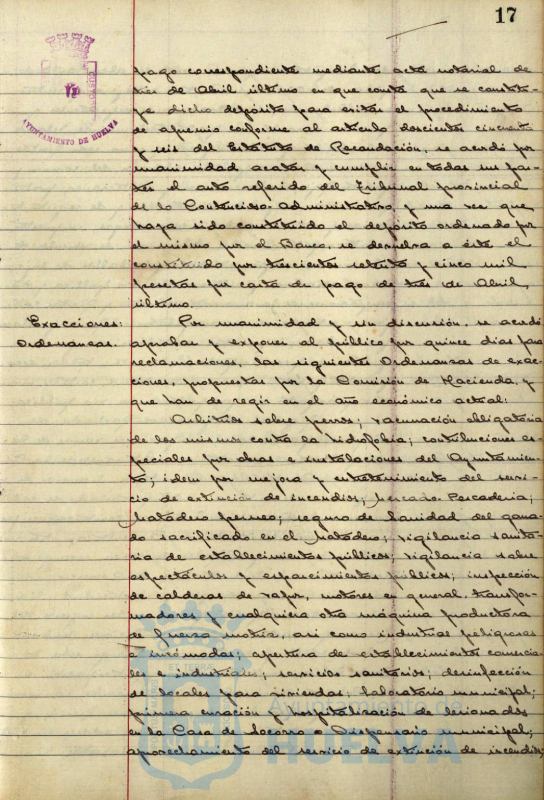 17
AYUNTAMIENTO DE HUELVA
pago correspondiente mediante acta notarial de
tres de Abril último en que consta que se constitu-
ye dicho depósito para evitar el procedimiento
de apremio conforme al artículo doscientos cincuenta
y seis del Estatuto de Recaudación, se acordó por
unanimidad acatar y cumplir en todas sus par-
tes el auto referido del Tribunal provincial
de lo Contencioso-Administrativo, y una vez que
haya sido constituido el depósito ordenado por
el mismo por el Banco, se devuelva a éste el
constituido por trescientas setenta y cinco mil
pesetas por carta de pago de tres de Abril
último.
Exacciones:
Ordenanzas.
Por unanimidad y sin discusión, se acordó
aprobar y exponer al público por quince días para
reclamaciones, las siguientes Ordenanzas de exac-
ciones, propuestas por la Comisión de Hacienda, y
que han de regir en el año económico actual:
Arbitrios sobre perros; vacunación obligatoria
de los mismos contra la hidrofobia; contribuciones es-
peciales por obras e instalaciones del Ayuntamien-
to; idem por mejora y entretenimiento del servi-
cio de extinción de incendios; Mercado Pescadería;
Matadero; seguro de Sanidad del gana-
do sacrificado en el Matadero; vigilancia sanita-
ria de establecimientos públicos; vigilancia sobre
espectáculos y esparcimientos públicos; inspección
de calderas de vapor, motores en general, transfor-
madores y cualquiera otra máquina productora
de fuerza motriz, así como industrias peligrosas
e incómodas; apertura de establecimientos comercia-
les e industriales; servicios sanitarios; desinfección
de locales para viviendas; laboratorio municipal;
primera curación y hospitalización de lesionados
en la Casa de Socorro o Dispensario municipal;
aprovechamiento del servicio de extinción de incendios;
Ayuntamiento de
HUELVA